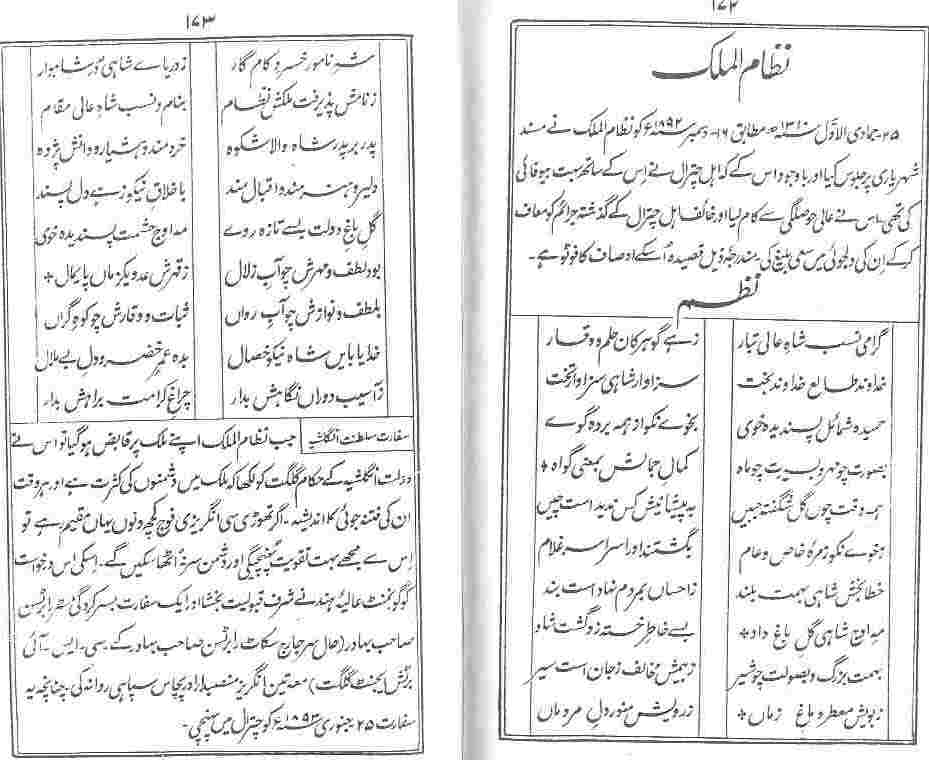 ۱۷۲
نظام الملک
۲۵۔ جمادی الاوّل سنہ ۱۳۱۰ھ مطابق ۱۶۔ دسمبر سنہ ۱۸۹۲ء کو نظام الملک نے مسند
شہریاری پر جلوس کیا اور باوجود اس کے کہ اہل چترال نے اس کے ساتھ سبت بیوفائی
کی تھی۔ اس نے عالی حوصلگی سے کام لیا اور مخالف اہل چترال کے گذشتہ جرائم کو معاف
کر کے اِن کی دلجوئی میں سعی بلیغ کی۔ مندرجہ ذیل قصیدہ اُسکے اوصاف کا فوٹو ہے۔
نظم
گرامی نسب شاہِ عالی تبار زہے گوہر کان حلم و وقار
خداوند طالع خداوند بخت سزاوار شاہی سزاوار تخت
حمیدہ شمائل پسندیدہ خوی بخوے نکو از ہمہ بردہ گوے
بصورت چو مہر و بسیرت چو ماہ کمال جمالش بمعنی گواہ *
ہمہ وقت چوں گل شگفتہ جبیں بہ پیشانیش کس ندید است چیں
بخوے نکو زمرۂ خاص و عام بگشتند اورا سراسر غلام
خطا بخش شاہی بہمت بلند ز احساں بمردم نہاد است بند
مداوجِ شاہی گلِ باغ داد * بسے خاطرِ خستہ زو گشت شاد
بہمت بزرگ و بصولت چو شیر زبیمش مخالف زجان است سیر
ز بویش معطر دماغ زماں * ز رویش منور دلِ مردماں
۱۷۳
شہِ نامور خسرو کام گار ز دریاے شاہی دُرِ شاہوار
ز نامش پذیرفت ملکش نظام بنام و نسب شاہِ عالی مقام
پدر بر پدر شاہ والا شکوہ خردمند و ہشیار و دانش پژوہ
دلیر و ہنرمند و اقبال مند باخلاق نیکو زبے دل پسند
گلِ باغِ دولت بسے تازہ روے مداوجِ حشمت پسندیدہ خوی
بود لطف و مہرش چو آبِ زلال ز قہرش عدو یکزماں پایمال *
بلطف و نوازش چو آبِ رواں ثبات و وقارش چو کوہِ گراں
خدایا بایں شاہ نیکو خصال بدہ عمرِ خضر و دلِ بے ملال
ز آسیب دوراں نگاہش بدار چراغِ کرامت براہش بدار
سفارت سلطنت انگلشیہ جب نظام الملک اپنے ملک پر قابض ہو گیا تو اس نے
دولت انگلشیہ کے حکام گلگت کو لکھا کہ ملک میں دشمنوں کی کثرت ہے اور ہر وقت
ان کی فتنہ جوئی کا اندیشہ۔ اگر تھوڑی سی انگریزی فوج کچھ دنوں یہاں مقیم رہے تو
اس سے مجھے بہت تقویت پہنچیگی اور دشمن سر نہ اُٹھا سکیں گے۔ اِسکی اس درخواست
کو گورنمنٹ عالیۂ ہند نے شرف قبولیت بخشا اور ایک سفارت بسرکردگی مسٹر رابرٹسن
صاحب بہادر (حال سر جارج سکاٹ رابرٹسن صاحب بہادر کے۔ سی۔ ایس۔ آئی
برٹش ایجنٹ گلگت) معہ تین انگریز منصبدار اور پچاس سپاہی روانہ کی۔ چنانچہ یہ
سفارت ۲۵ جنوری سنہ ۱۸۹۳ء کو چترال میں پہنچی۔